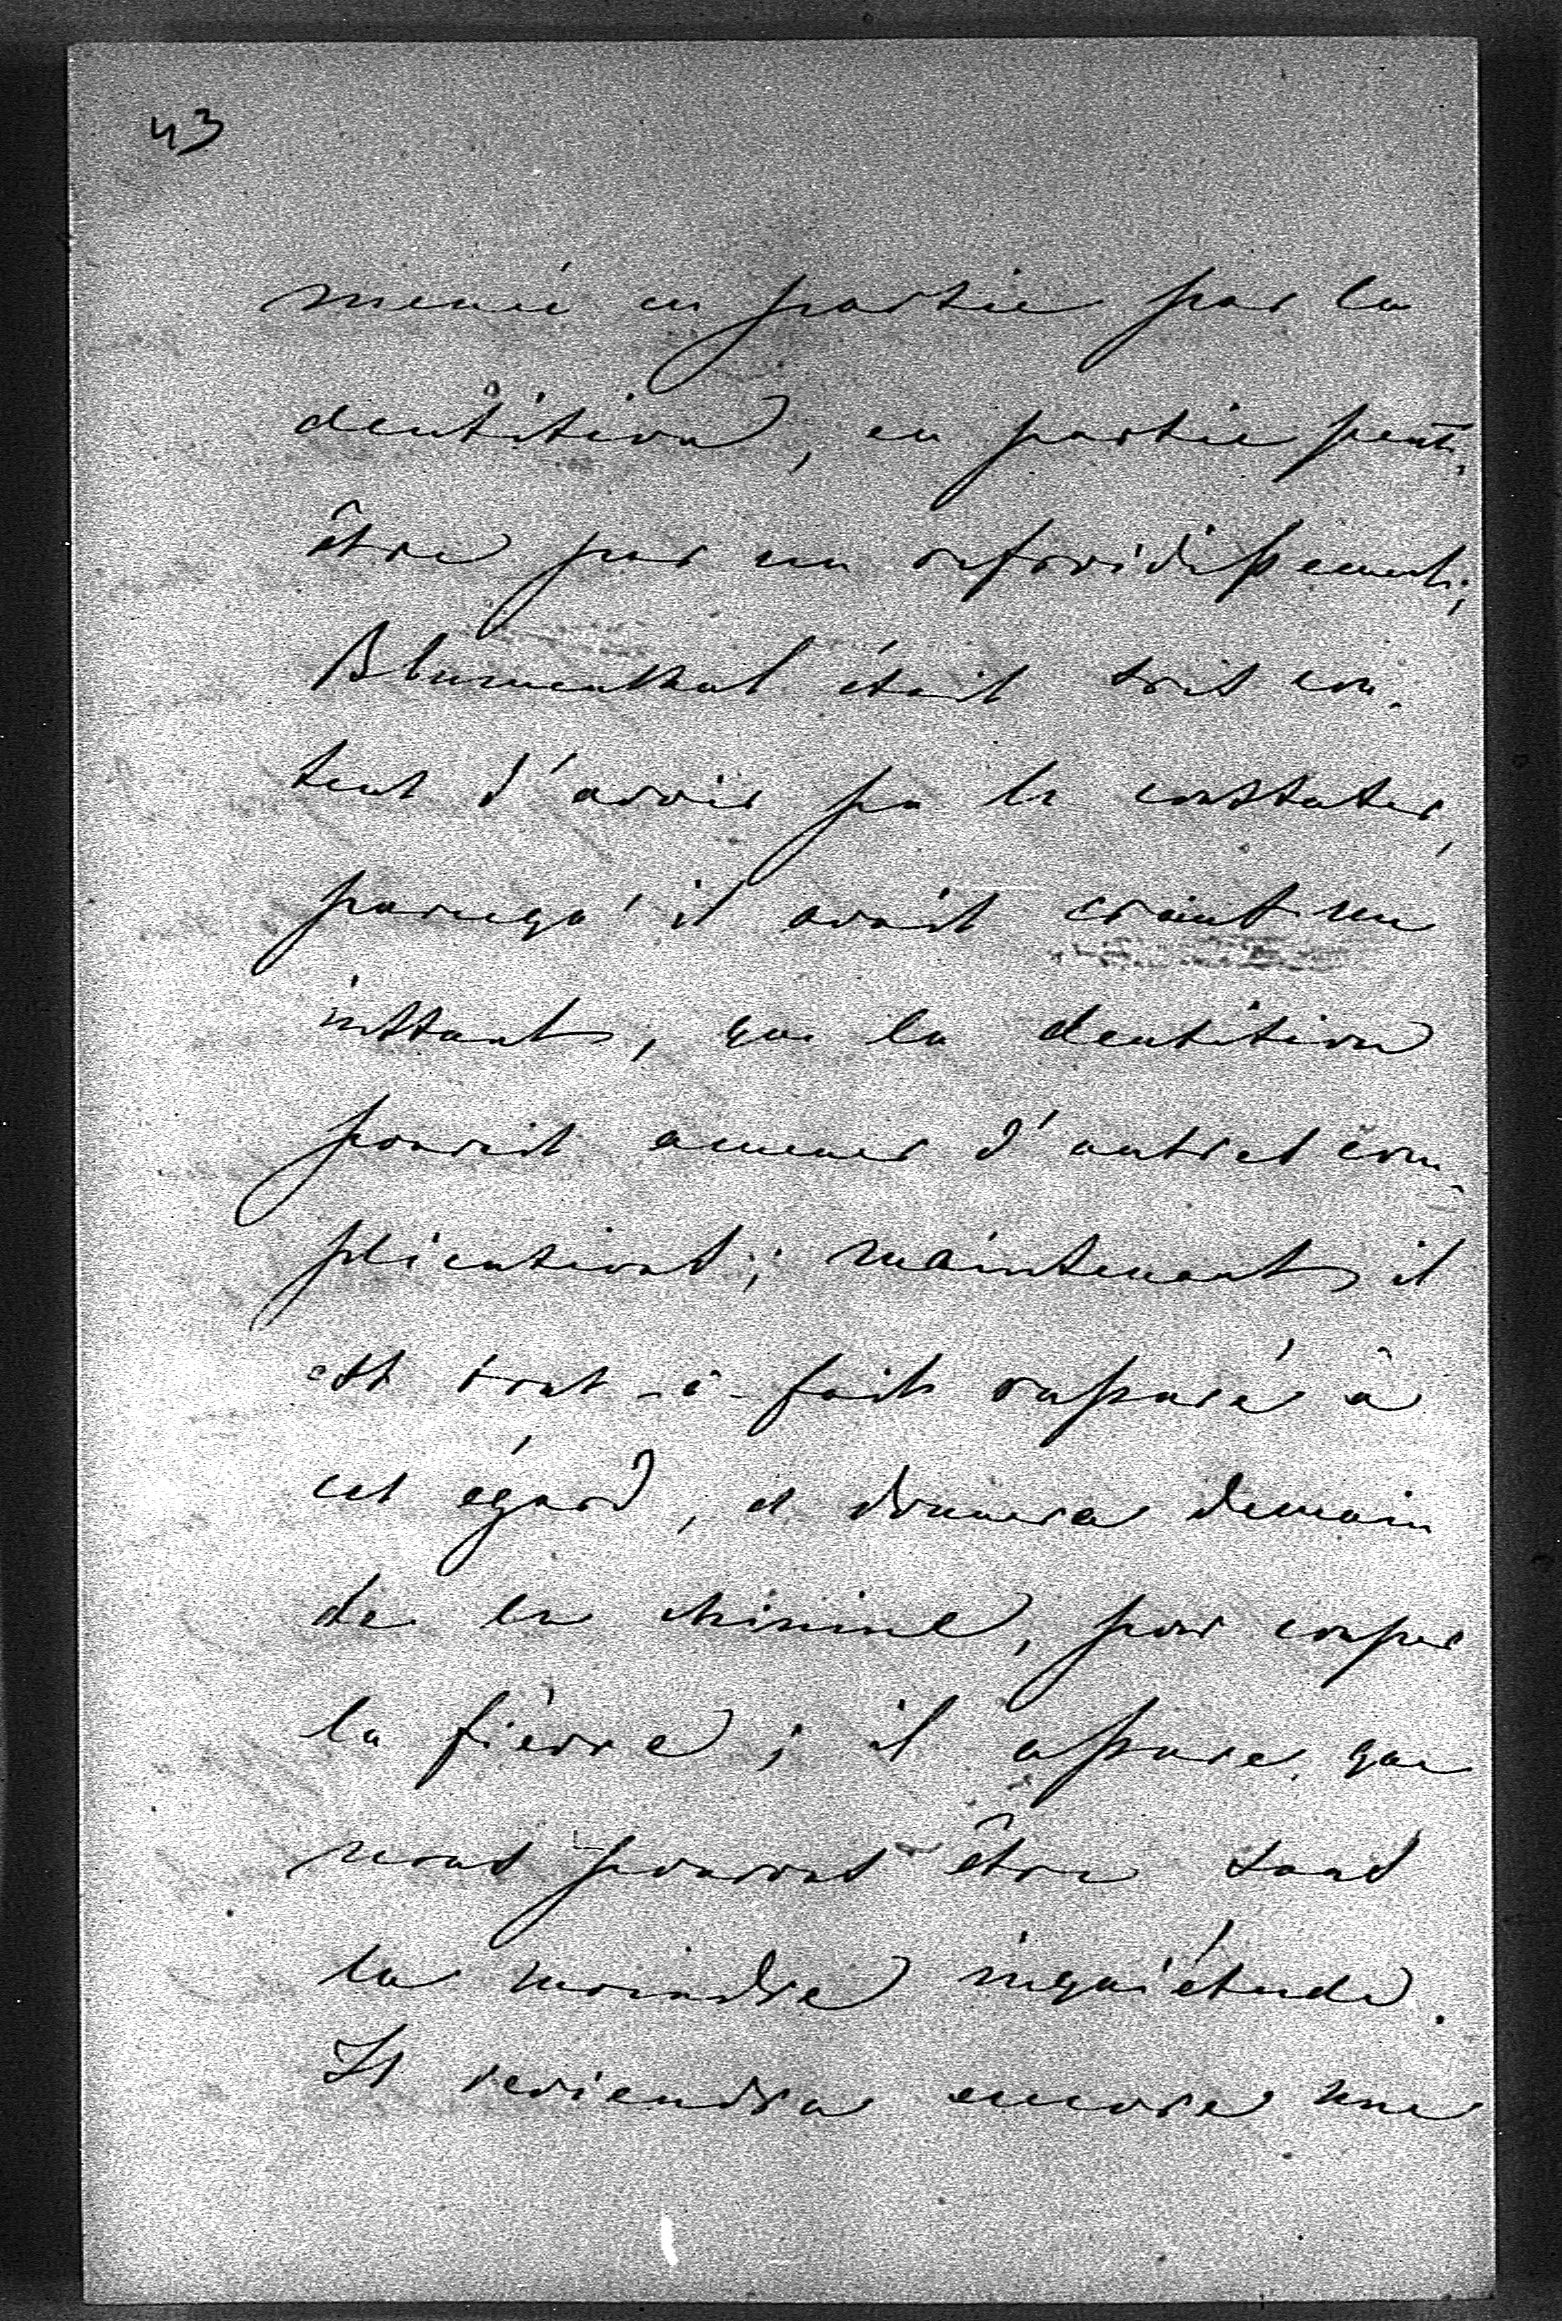 43
mené en partie par la
dentition, en partie peut-
être par un refroidissement;
Blumenthal était très con-
tent d'avoir pu le constater,
parcequ'il avait craint un
instant, que la dentition
pourait amener d'autres com-
plications; maintenant il
est tout-à-fait rassuré à
cet égard, et donnera demain
de la chinine, pour couper
la fièvre; il assure que
nous pouvons être sans
la moindre inquiétude.
Il reviendra encore une